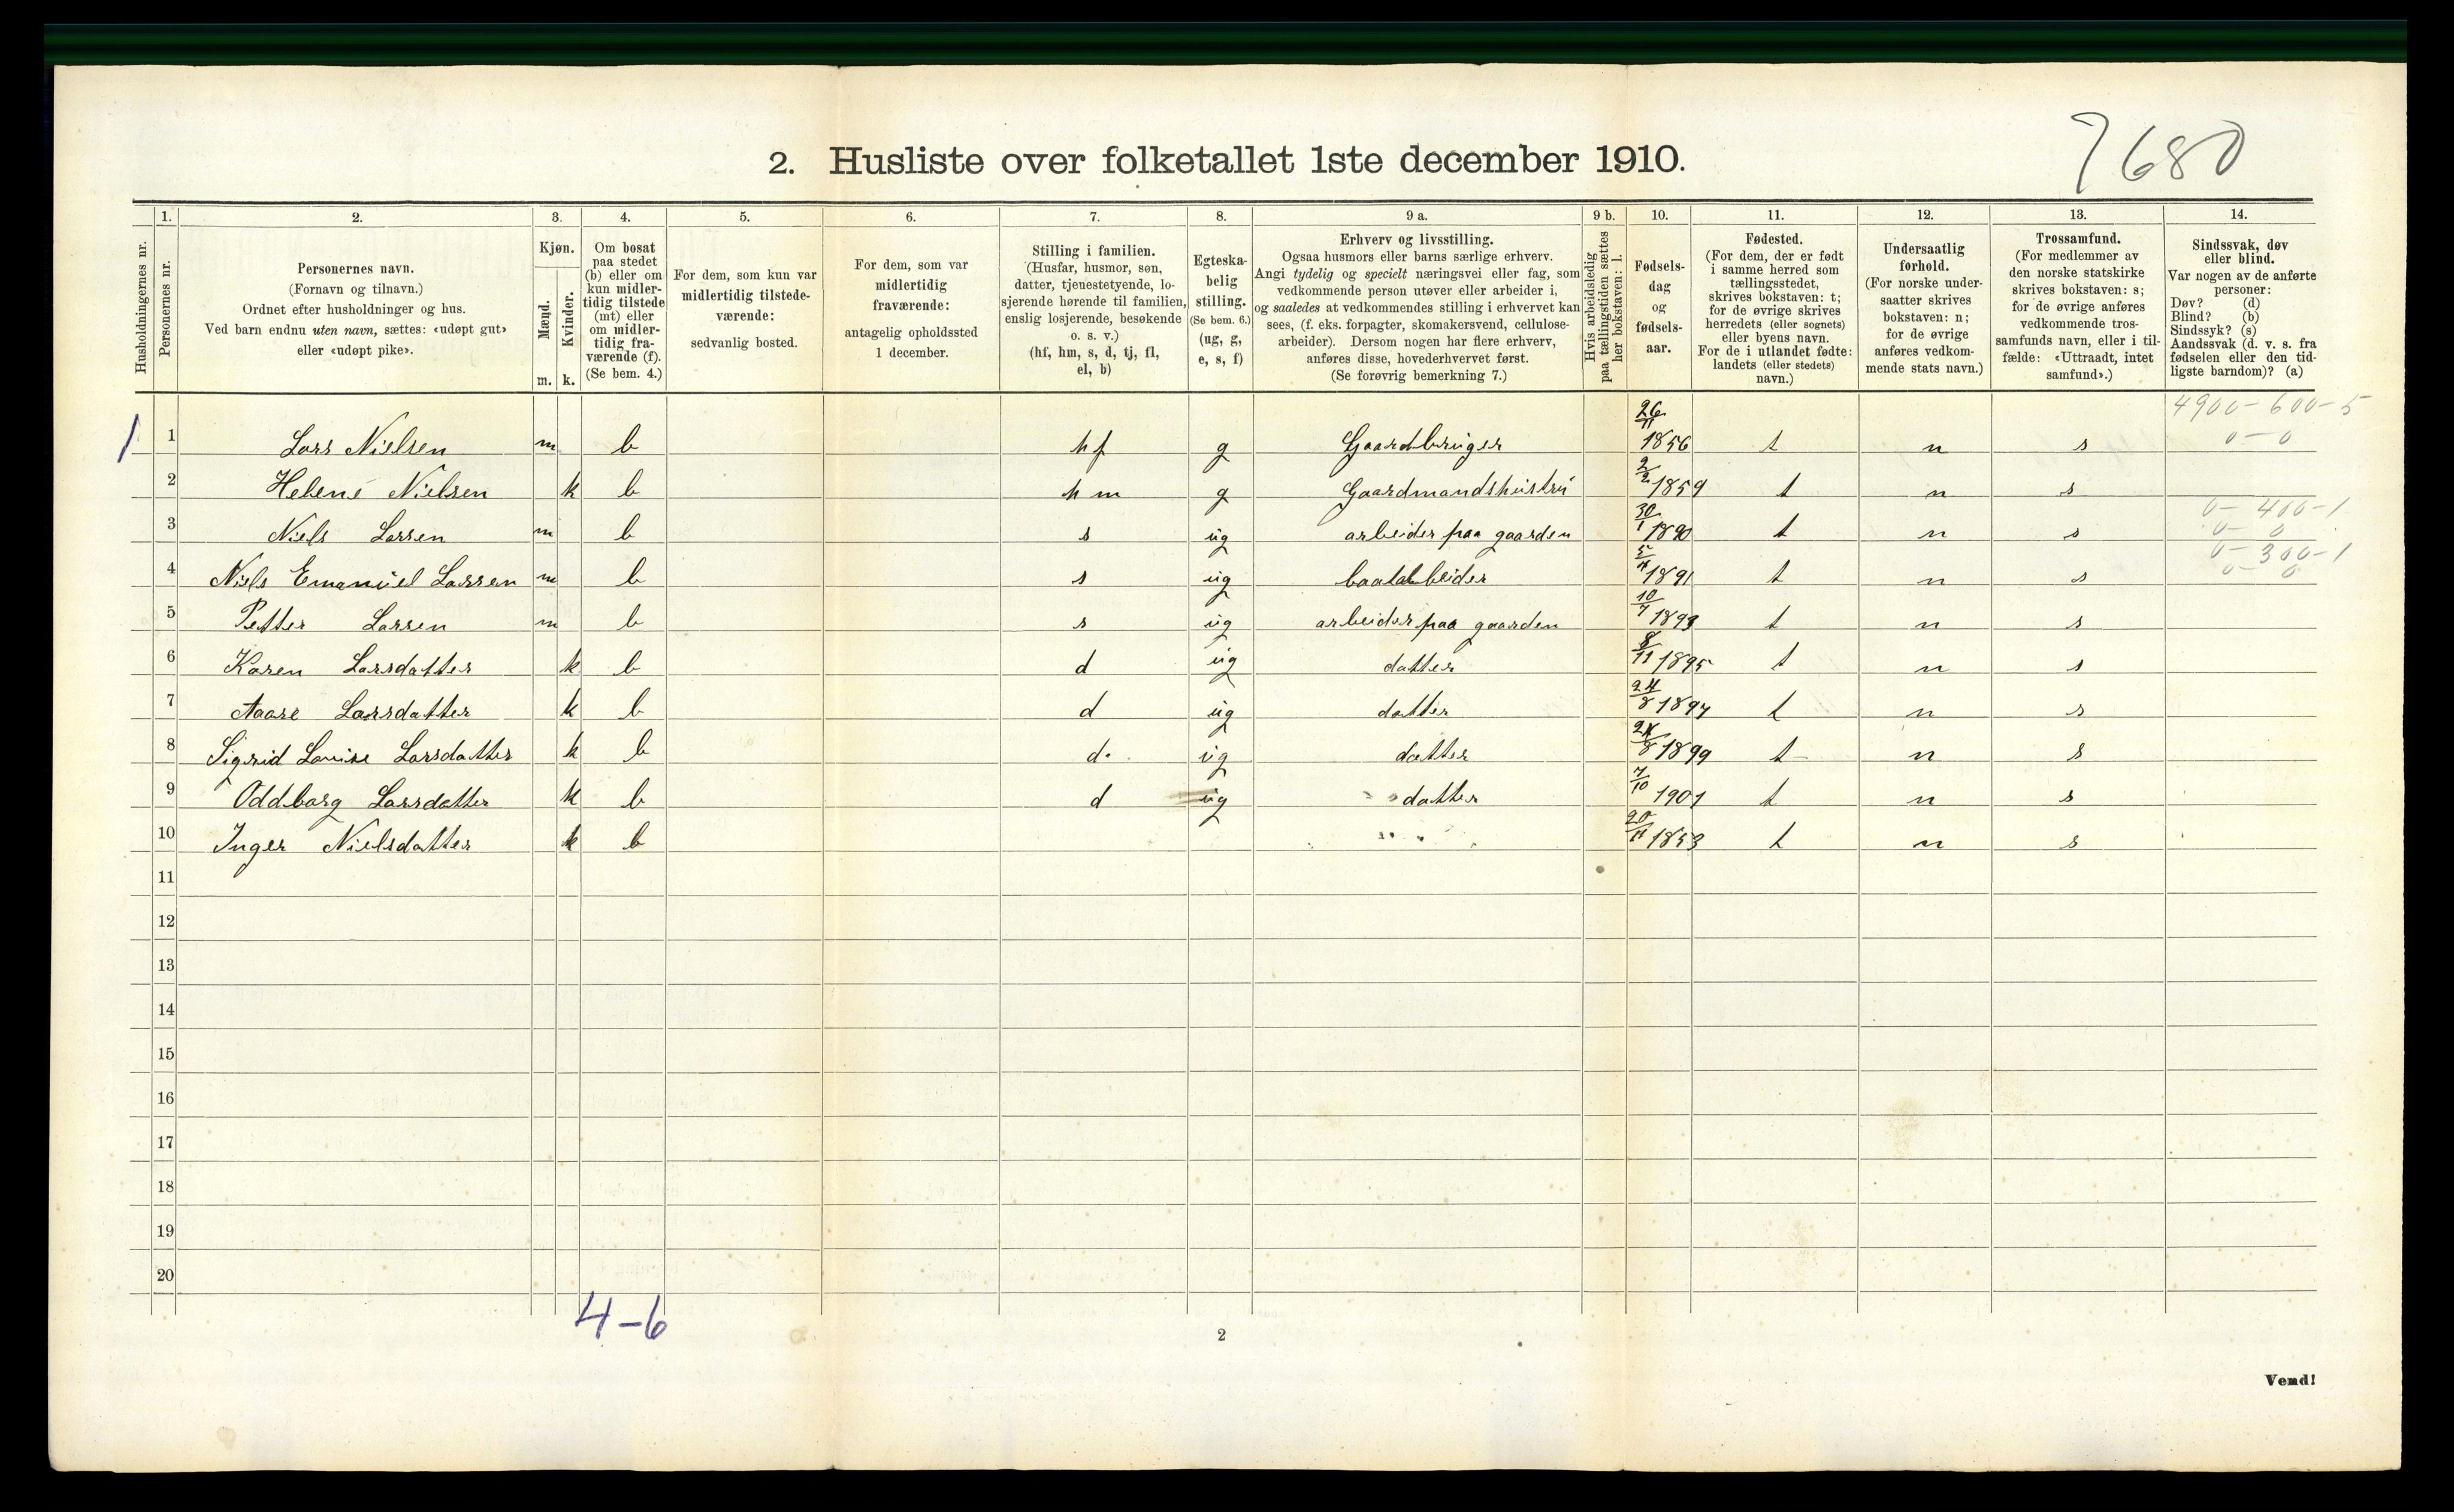 7680
2. Husliste over folketallet 1ste december 1910.
Husholdningernes nr.
1. Personernes nr.
2. Personernes navn.
(Fornavn og tilnavn.)
Ordnet efter husholdninger og hus.
Ved barn endnu uten navn, sættes: «udøpt gut»
eller «udøpt pike».
3. Kjøn.
Mænd. m.
Kvinder. k.
4. Om bosat
paa stedet
(b) eller om
kun midler-
tidig tilstede
(mt) eller
om midler-
tidig fra-
værende (f).
(Se bem. 4.)
5. For dem, som kun var
midlertidig tilstede-
værende:
sedvanlig bosted.
6. For dem, som var
midlertidig
fraværende:
antagelig opholdssted
1 december.
7. Stilling i familien.
(Husfar, husmor, søn,
datter, tjenestetyende, lo-
sjerende hørende til familien,
enslig losjerende, besøkende
o. s. v.)
(hf, hm, s, d, tj, fl,
el, b)
8. Egteska-
belig
stilling.
(Se bem. 6.)
(ug, g,
e, s, f)
9 a. Erhverv og livsstilling.
Ogsaa husmors eller barns særlige erhverv.
Angi tydelig og specielt næringsvei eller fag, som
vedkommende person utøver eller arbeider i,
og saaledes at vedkommendes stilling i erhvervet kan
sees, (f. eks. forpagter, skomakersvend, cellulose-
arbeider). Dersom nogen har flere erhverv,
anføres disse, hovederhvervet først.
(Se forøvrig bemerkning 7.)
9 b. Hvis arbeidsledig
paa tællingstiden sættes
her bokstaven: l.
10. Fødsels-
dag
og
fødsels-
aar.
11. Fødested.
(For dem, der er født
i samme herred som
tællingsstedet,
skrives bokstaven: t;
for de øvrige skrives
herredets (eller sognets)
eller byens navn.
For de i utlandet fødte:
landets (eller stedets)
navn.)
12. Undersaatlig
forhold.
(For norske under-
saatter skrives
bokstaven: n;
for de øvrige
anføres vedkom-
mende stats navn.)
13. Trossamfund.
(For medlemmer av
den norske statskirke
skrives bokstaven: s;
for de øvrige anføres
vedkommende tros-
samfunds navn, eller i til-
fælde: «Uttraadt, intet
samfund».)
14. Sindssvak, døv
eller blind.
Var nogen av de anførte
personer:
Døv? (d)
Blind? (b)
Sindssyk? (s)
Aandssvak (d. v. s. fra
fødselen eller den tid-
ligste barndom)? (a)
1 1 Lars Nielsen m b hf g Gaardbruger 26/11 1856 t n s 4900-600-5 0-0
2 Helene Nielsen k b hm g Gaardmandshustru 2/2 1859 t n s
3 Niels Larsen m b s ug arbeider paa gaarden 30/1 1890 t n s 0-400-1 0-0
4 Niels Emanuel Larsen m b s ug 1891 t n s 0-300-1 0-0
5 Petter Larsen m b s ug arbeider paa gaarden 10/7 1893 t n s
6 Karen Larsdatter k b d ug datter 8/11 1895 t n s
7 Aase Larsdatter k b d ug datter 24/8 1897 t n s
8 Sigrid Louise Larsdatter k b d. ug datter 1899 t n s
9 Oddborg Larsdatter k b d ug datter 7/10 1901 t n s
10 Inger Nielsdatter k b 20/11 1853 t n s
11
12
13
14
15
16
17
18
19
20
4-6
2
Vend!